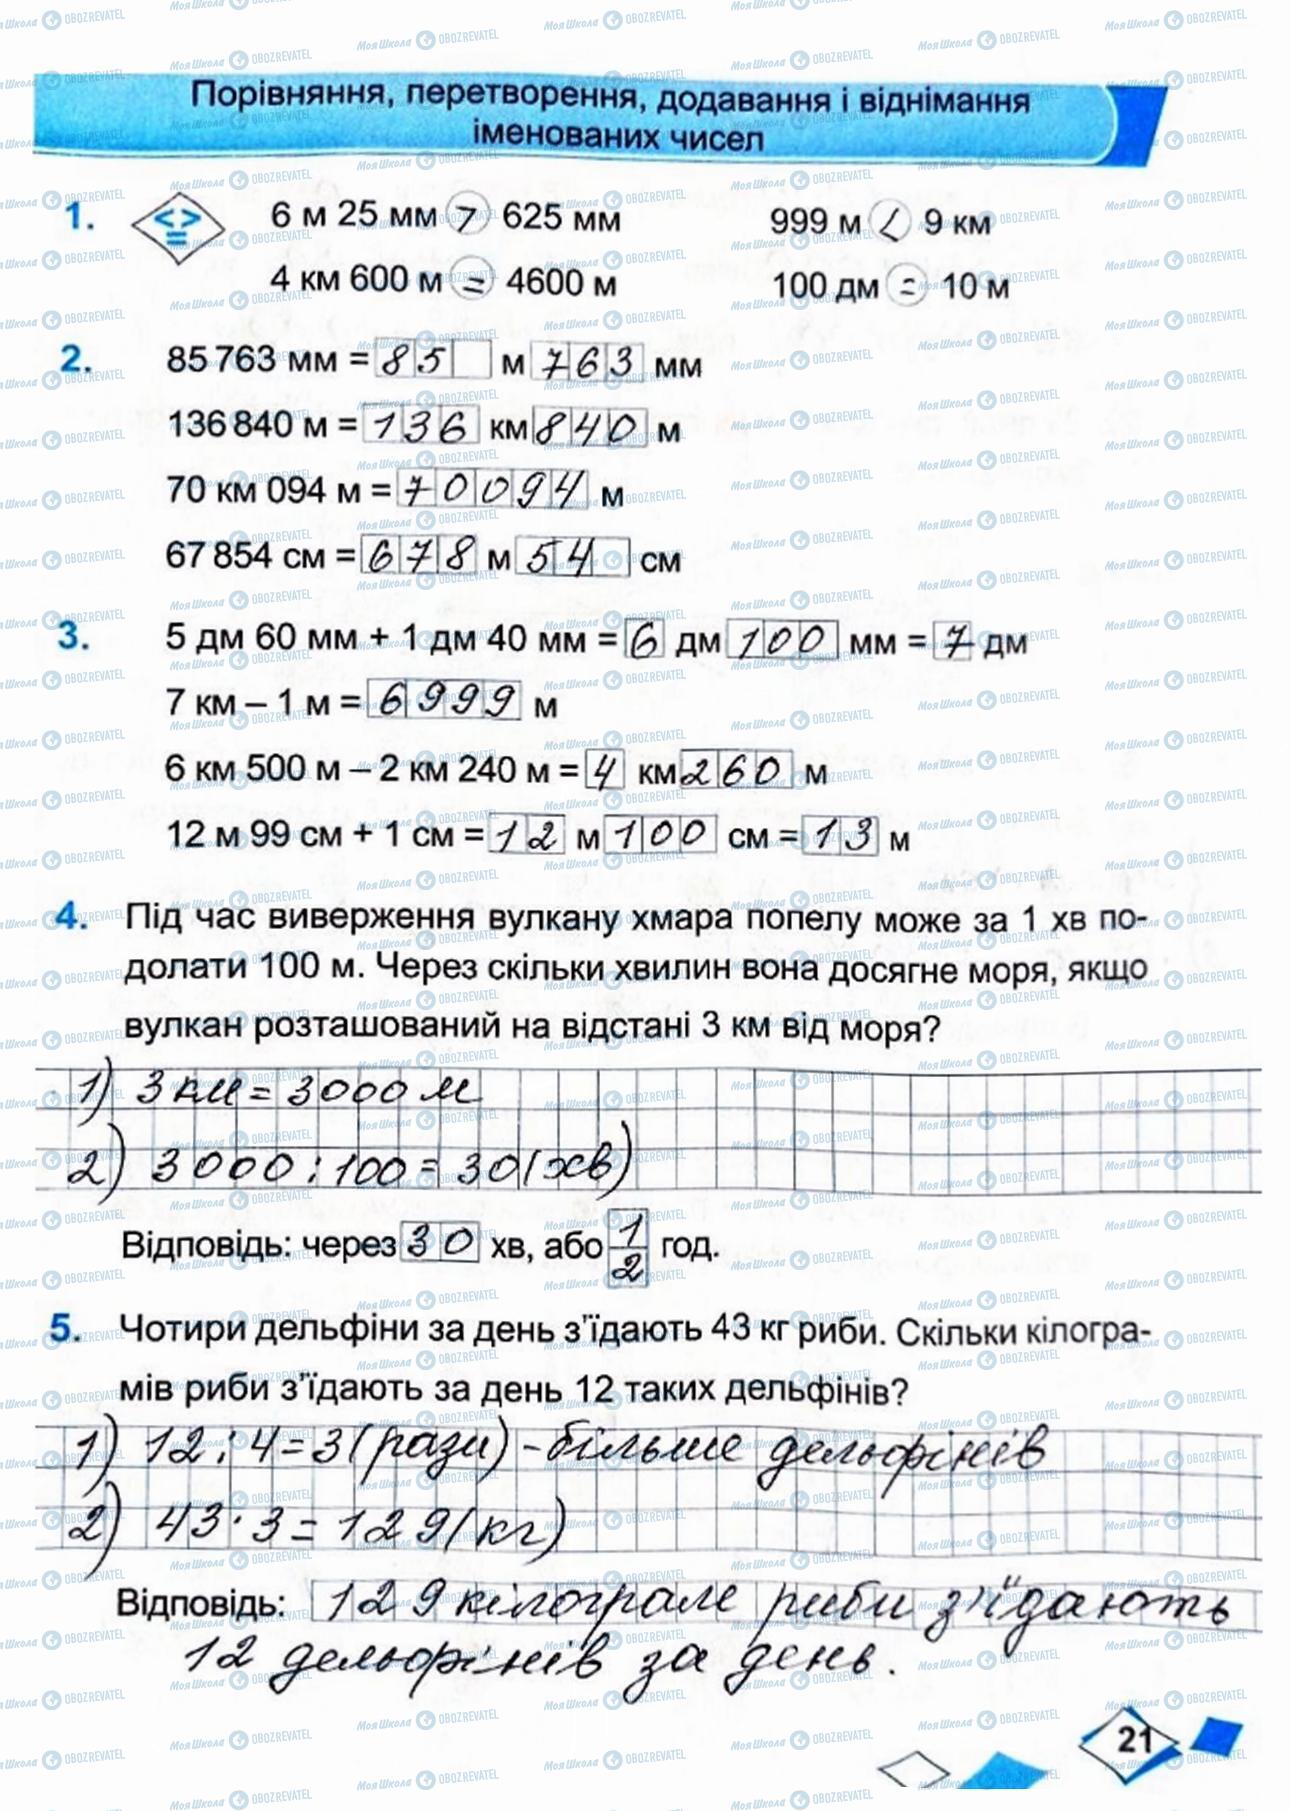 Порівняння, перетворення, додавання і віднімання
іменованих чисел
1. < > = 6 м 25 мм > 625 мм 999 м < 9 км
4 км 600 м = 4600 м 100 дм = 10 м
2. 85 763 мм = 85 м 763 мм
136 840 м = 136 км 840 м
70 км 094 м = 70094 м
67 854 см = 678 м 54 см
3. 5 дм 60 мм + 1 дм 40 мм = 6 дм 100 мм = 7 дм
7 км – 1 м = 6999 м
6 км 500 м – 2 км 240 м = 4 км 260 м
12 м 99 см + 1 см = 12 м 100 см = 13 м
4. Під час виверження вулкану хмара попелу може за 1 хв по-
долати 100 м. Через скільки хвилин вона досягне моря, якщо
вулкан розташований на відстані 3 км від моря?
1) 3 км = 3000 м
2) 3000 : 100 = 30 (хв)
Відповідь: через 30 хв, або 1/2 год.
5. Чотири дельфіни за день з'їдають 43 кг риби. Скільки кілогра-
мів риби з'їдають за день 12 таких дельфінів?
1) 12 : 4 = 3 (рази) - більше дельфінів
2) 43 · 3 = 129 (кг)
Відповідь: 129 кілограмів риби з'їдають
12 дельфінів за день.
21
МояШкола OBOZREVATEL